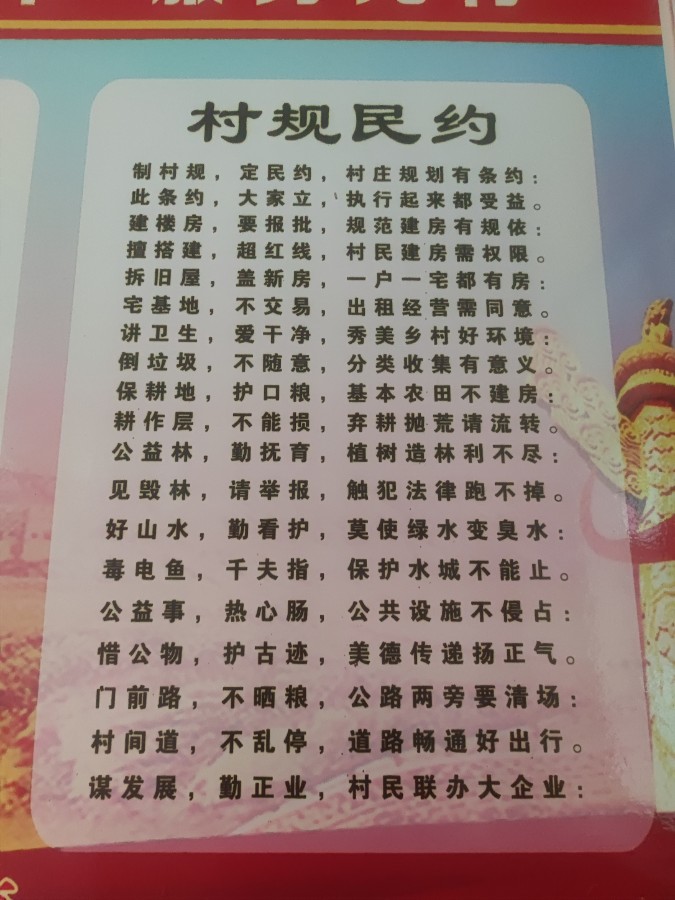 村规民约
制村规，定民约，村庄规划有条约：
此条约，大家立，执行起来都受益。
建楼房，要报批，规范建房有规依：
擅搭建，超红线，村民建房需权限。
拆旧屋，盖新房，一户一宅都有房：
宅基地，不交易，出租经营需同意。
讲卫生，爱干净，秀美乡村好环境：
倒垃圾，不随意，分类收集有意义。
保耕地，护口粮，基本农田不建房：
耕作层，不能损，弃耕抛荒请流转。
公益林，勤抚育，植树造林利不尽：
见毁林，请举报，触犯法律跑不掉。
好山水，勤看护，莫使绿水变臭水：
毒电鱼，千夫指，保护水城不能止。
公益事，热心肠，公共设施不侵占：
惜公物，护古迹，美德传递扬正气。
门前路，不晒粮，公路两旁要清场：
村间道，不乱停，道路畅通好出行。
谋发展，勤正业，村民联办大企业：